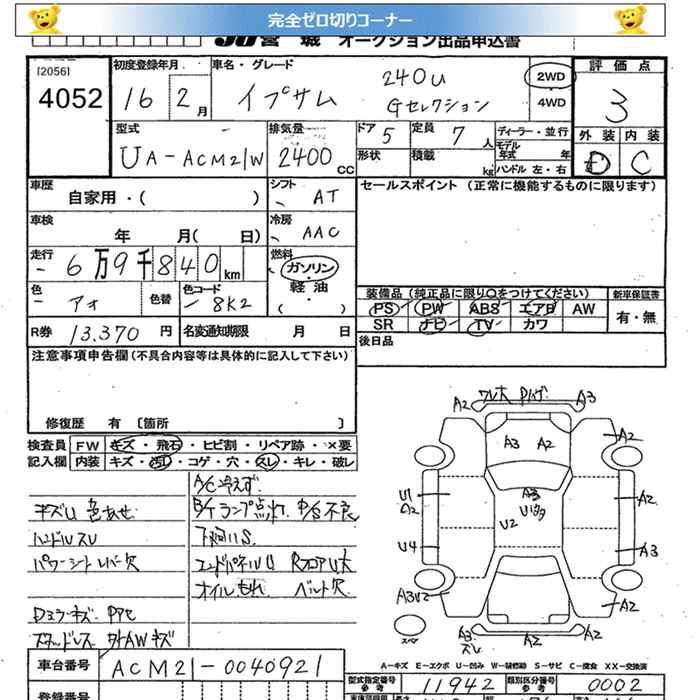 完全ゼロ切りコーナー
JU宮城 オークション出品申込書
[2056]
4052
初度登録年月
16 2月
車名・グレード
イプサム 240u Gセレクション
2WD
4WD
評価点
3
外装 内装
D C
型式
UA-ACM21W
排気量
2400 CC
ドア 5
定員 7 人
形状
積載 kg
ディーラー・並行
モデル年式 年
ハンドル 左・右
車歴
自家用・( )
シフト
AT
セールスポイント (正常に機能するものに限ります)
車検
年 月(日)
冷房
AAC
走行
6万9千840km
燃料
ガソリン
軽油
( )
色
アオ
色替
色コード
8K2
装備品 (純正品に限り○をつけてください)
新車保証書
PS PW ABS エアB AW
有・無
SR ナビ TV カワ
R券 13,370 円
名変通知期限 月 日
後日品
注意事項申告欄(不具合内容等は具体的に記入して下さい)
修復歴 有〔箇所 〕
検査員 FW キズ・飛石・ヒビ割・リペア跡・×要
記入欄 内装 キズ・汚れ・コゲ・穴・スレ・キレ・破レ
A/C冷えず
キズU 色あせ
B/Tランプ点灯 P/S不良
ハンドルスレ
下廻りS
パワーシートレバー欠
エンドパネルU RフロアU大
オイルもれ ベルト欠
Dミラーキズ
スタッドレス 外AWキズ
A2
A3
A3 A2
A2
U1
A2
A3
U2
A2
U4
A3
A3U2
A2
A2
スペア
A3
スレ
A2
A-キズ E-エクボ U-凹み W-補修跡 S-サビ C-腐食 XX-交換済
車台番号
ACM21-0040921
型式指定番号
参考
11942
類別区分番号
参考
0002
登録番号